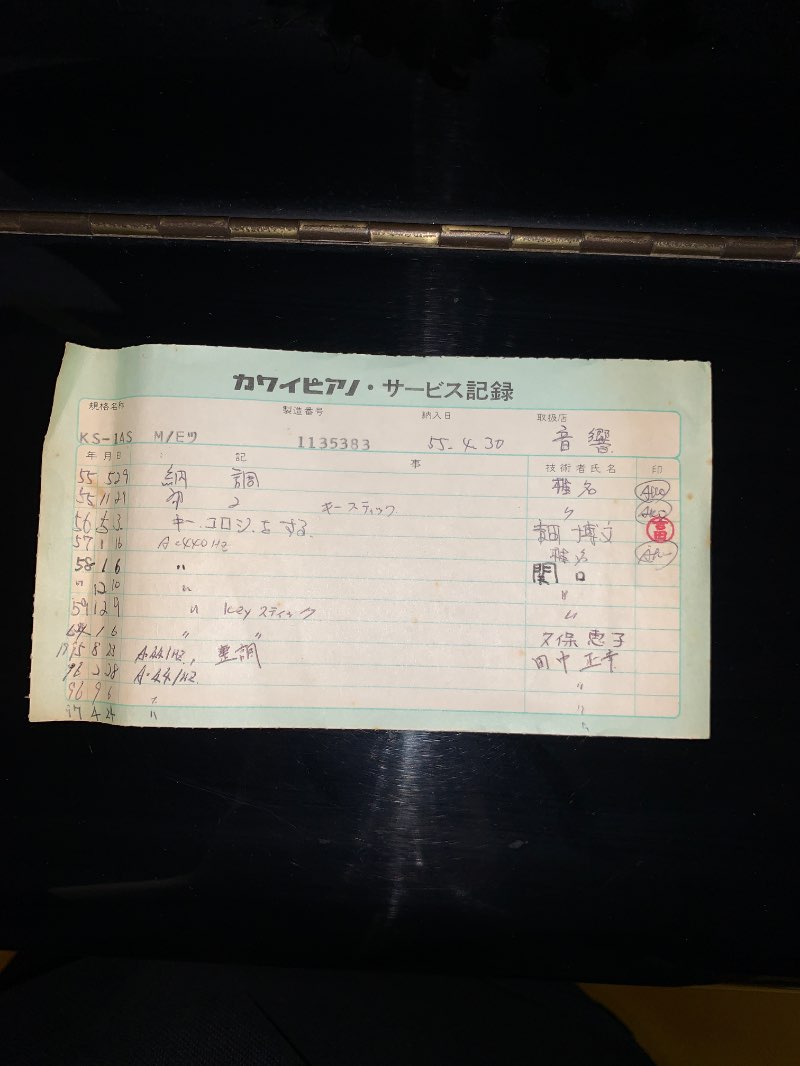 カワイピアノ・サービス記録
規格名称 製造番号 納入日 取扱店
KS-1AS M/Eツ 1135383 55.4.30 音響
年月日 記事 技術者氏名 印
55 5 29 納調 椎名
55 11 21 2 キースティック 〃
56 5 3 キーコロジ. をする. 吉田博文 吉田
57 1 16 A-440HZ 椎名
58 1 6 〃 関口
〃 12 10 〃 〃
59 12 9 〃 Keyスティック 〃
64 1 6 〃 〃 久保恵子
1995 8 23 A-441HZ, 整調 田中正幸
96 2 28 A-441HZ. 〃
96 9 6 〃 〃
97 4 24 〃 〃